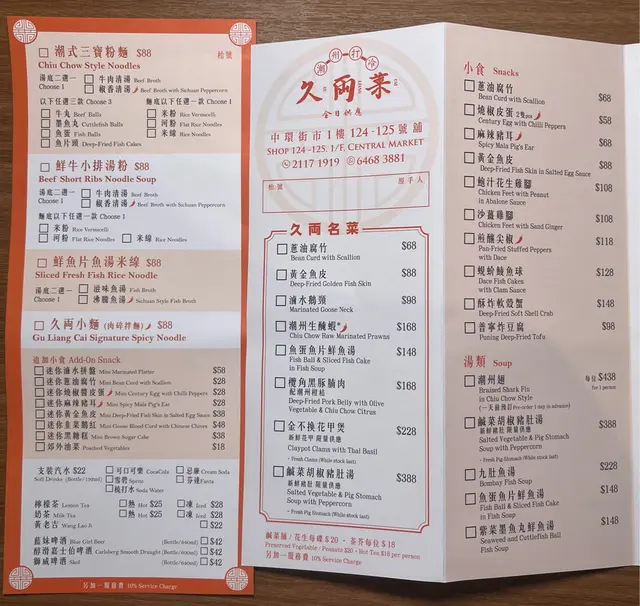 潮式三寶粉麵 $88
枱號
Chiu Chow Style Noodles
湯底二選一 Choose 1
牛肉清湯 Beef Broth
椒香清湯 Beef Broth with Sichuan Peppercorn
以下任選三款 Choose 3
牛丸 Beef Balls
墨魚丸 Cuttlefish Balls
魚蛋 Fish Balls
魚片頭 Deep-Fried Fish Cakes
麵底以下任選一款 Choose 1
米粉 Rice Vermicelli
河粉 Flat Rice Noodles
米線 Rice Noodles
鮮牛小排湯粉 $88
Beef Short Ribs Noodle Soup
湯底二選一 Choose 1
牛肉清湯 Beef Broth
椒香清湯 Beef Broth with Sichuan Peppercorn
麵底以下任選一款 Choose 1
米粉 Rice Vermicelli
河粉 Flat Rice Noodles
米線 Rice Noodles
鮮魚片魚湯米線 $88
Sliced Fresh Fish Rice Noodle
湯底二選一 Choose 1
滋味魚湯 Fish Broth
沸騰魚湯 Sichuan Style Fish Broth
久兩小麵 (肉碎拌麵) $88
Gu Liang Cai Signature Spicy Noodle
追加小食 Add-On Snack
迷你滷水拼盤 Mini Marinated Platter $58
迷你蔥油腐竹 Mini Bean Curd with Scallion $28
迷你燒椒皮蛋 Mini Century Egg with Chilli Peppers $28
迷你麻辣豬耳 Mini Spicy Mala Pig's Ear $28
迷你黃金魚皮 Mini Deep-Fried Fish Skin in Salted Egg Sauce $38
迷你韭菜鵝紅 Mini Goose Blood Curd with Chinese Chives $48
迷你黑糖糕 Mini Brown Sugar Cake $38
郊外油菜 Poached Vegetables $18
支裝汽水 $22
Soft Drinks (Bottle/190ml)
可口可樂 CocaCola
忌廉 Cream Soda
雪碧 Sprite
芬達 Fanta
梳打水 Soda Water
檸檬茶 Lemon Tea 熱 Hot $25 凍 Iced $28
奶茶 Milk Tea 熱 Hot $25 凍 Iced $28
黃老吉 Wong Lao Ji $22
藍妹啤酒 Blue Girl Beer $42
醇滑嘉士伯啤酒 Carlsberg Smooth Draught $42
獅威啤酒 Skol $42
另加一服務費 10% Service Charge
潮州打冷
久兩菜
全日供應
中環街市1樓 124-125號舖
SHOP 124-125. 1/F, CENTRAL MARKET
2117 1919 6468 3881
枱號
經手人
久兩名菜
蔥油腐竹 $68
Bean Curd with Scallion
黃金魚皮 $88
Deep-Fried Golden Fish Skin
滷水鵝頸 $98
Marinated Goose Neck
潮州生醃蝦* $168
Chiu Chow Raw Marinated Prawns
魚蛋魚片鮮魚湯 $148
Fish Ball & Sliced Fish Cake
in Fish Soup
欖角黑豚腩肉 $168
配潮州柑桔
Deep-Fried Pork Belly with Olive
Vegetable & Chiu Chow Citrus
金不換花甲煲 $228
新鮮花甲 限量供應
Claypot Clams with Thai Basil
* Fresh Clams (While stock last)
鹹菜胡椒豬肚湯 $388
新鮮豬肚 限量供應
Salted Vegetable & Pig Stomach
Soup with Peppercorn
* Fresh Pig Stomach (While stock last)
鹹菜脯 / 花生每碟 $20 · 茶芥每位 $18
Preserved Vegetable / Peanuts $20 · Hot Tea $18 per person
另加一服務費 10% Service Charge
小食 Snacks
蔥油腐竹 $68
Bean Curd with Scallion
燒椒皮蛋 2隻 $58
Century Egg with Chilli Peppers
麻辣豬耳 $68
Spicy Mala Pig's Ear
黃金魚皮 $88
Deep-Fried Fish Skin in Salted Egg Sauce
鮑汁花生雞腳 $108
Chicken Feet with Peanut
in Abalone Sauce
沙薑雞腳 $108
Chicken Feet with Sand Ginger
煎釀尖椒 $118
Pan-Fried Stuffed Peppers
with Dace
蜆蚧鯪魚球 $128
Dace Fish Cakes
with Clam Sauce
酥炸軟殼蟹 $148
Deep-Fried Soft Shell Crab
普寧炸豆腐 $98
Puning Deep-Fried Tofu
湯類 Soup
潮州翅 每位 $438
Per 1 person
Braised Shark Fin
in Chiu Chow Style
(一天前預訂 Pre-order 1 day in advance)
鹹菜胡椒豬肚湯 $388
新鮮豬肚 限量供應
Salted Vegetable & Pig Stomach
Soup with Peppercorn
* Fresh Pig Stomach (While stock last)
九肚魚湯 $228
Bombay Fish Soup
魚蛋魚片鮮魚湯 $148
Fish Ball & Sliced Fish Cake
in Fish Soup
紫菜墨魚丸鮮魚湯 $148
Seaweed and Cuttlefish Ball
Fish Soup